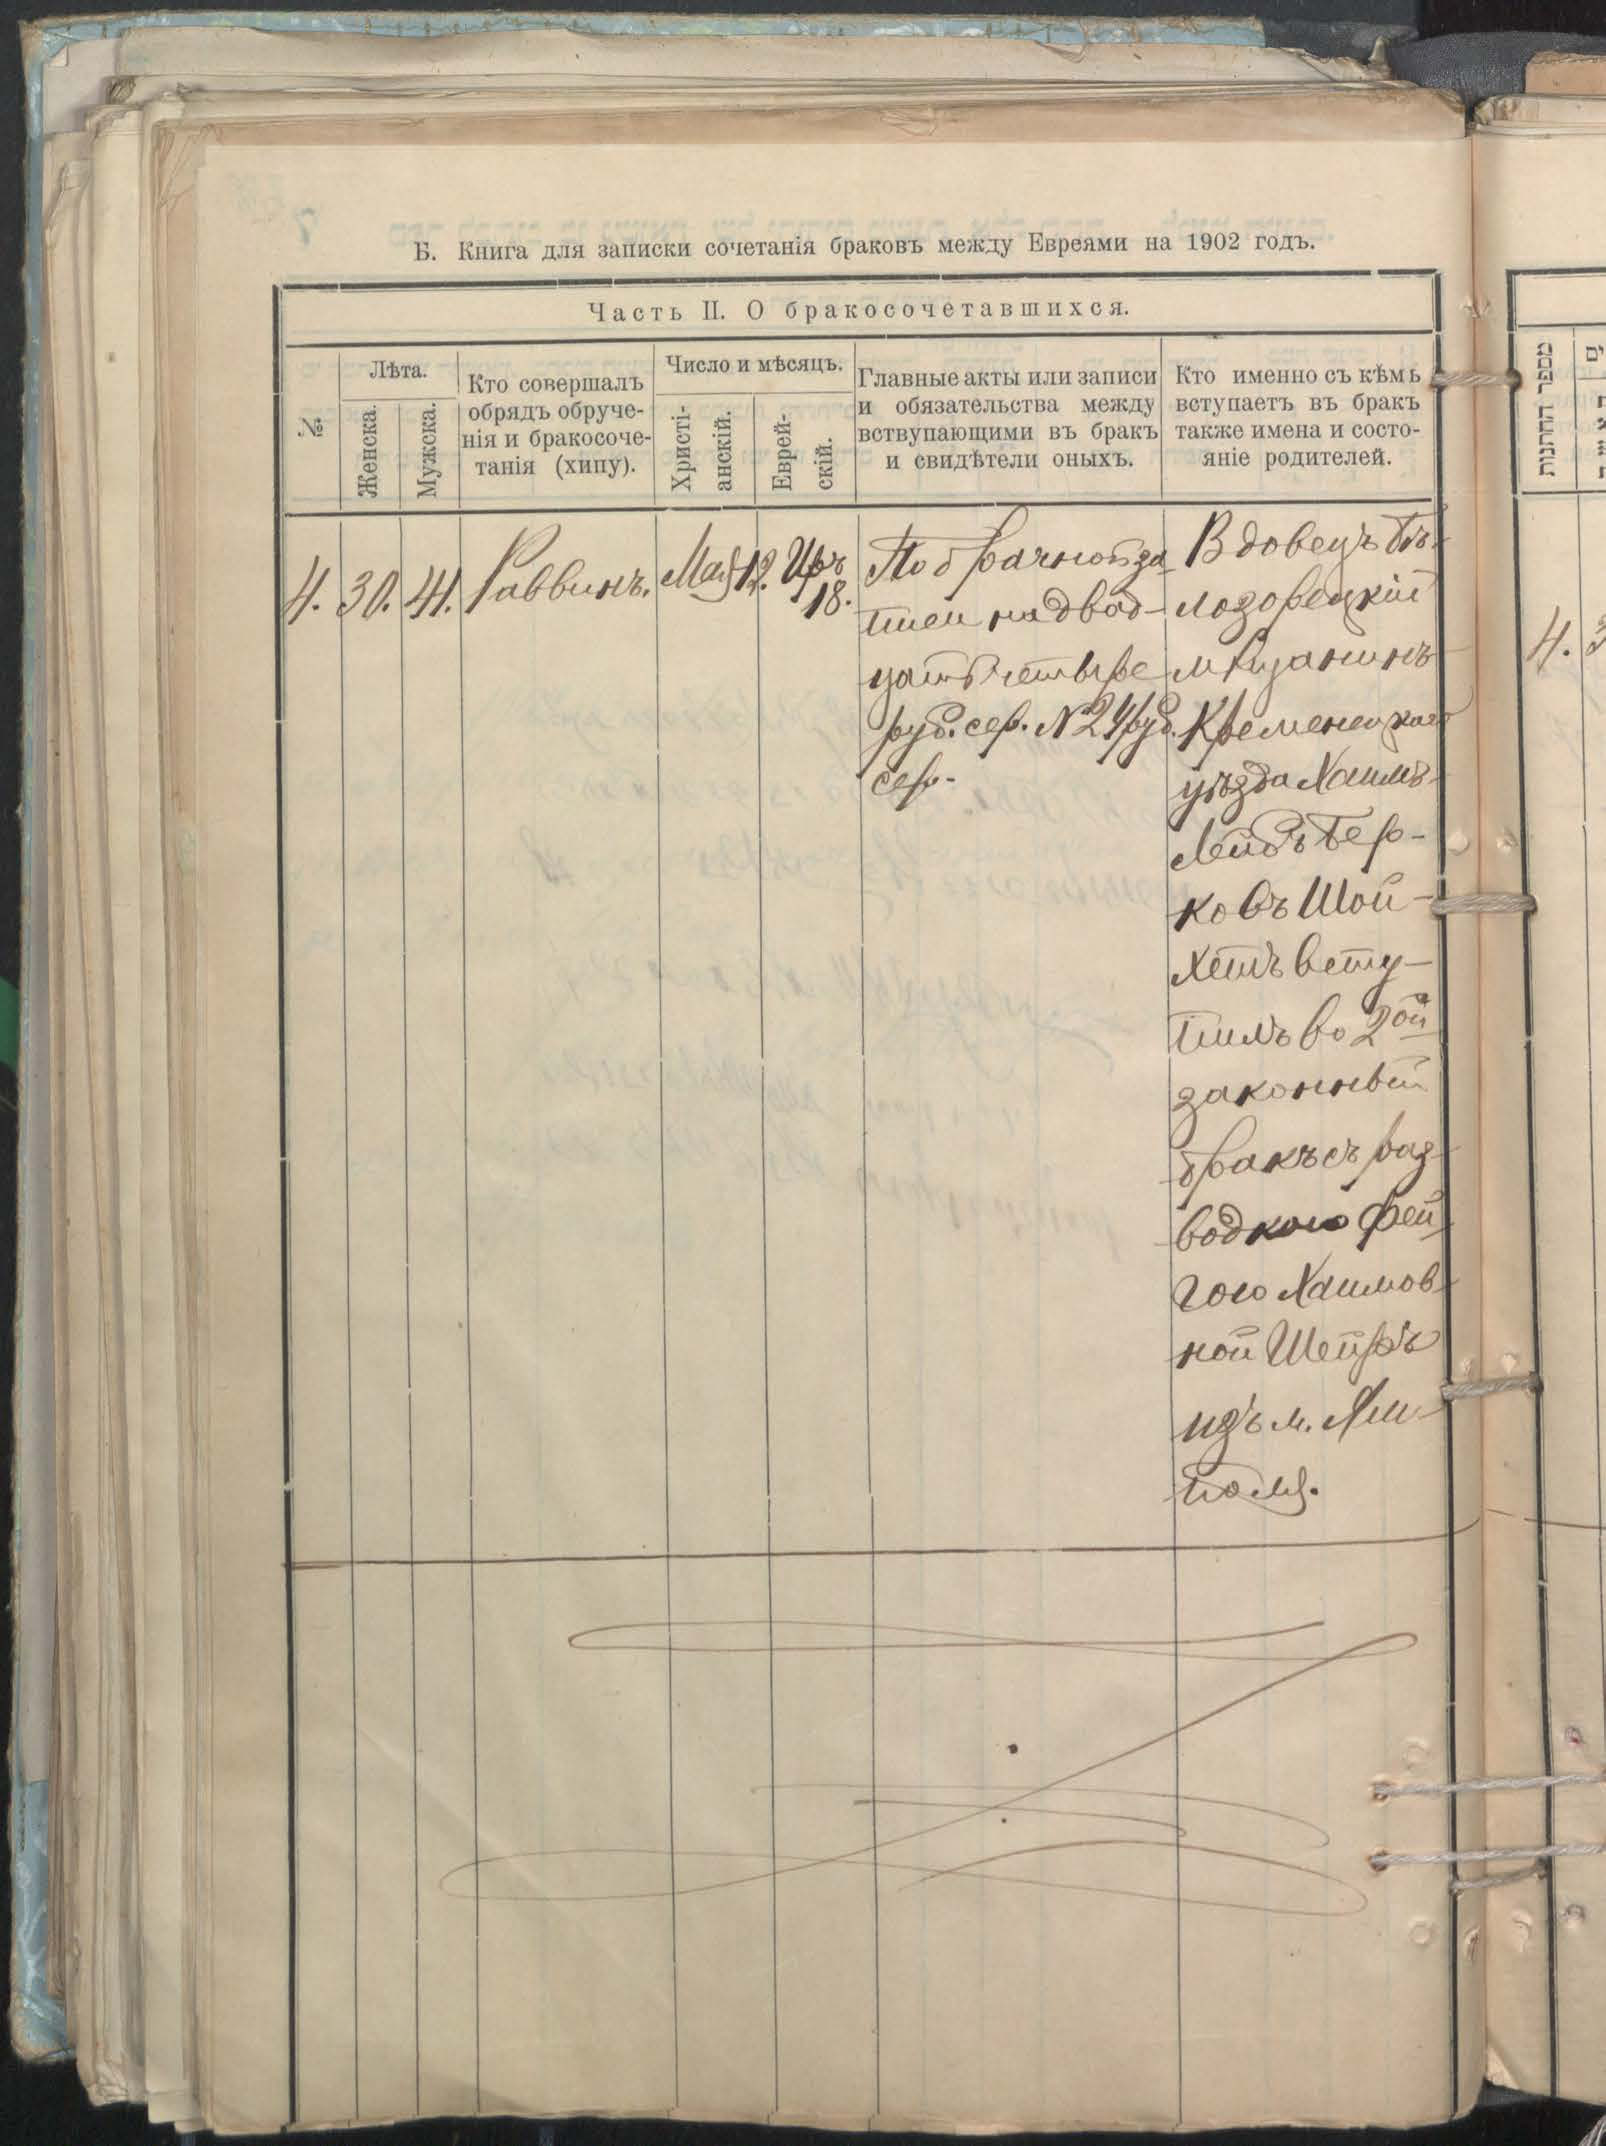 Б. Книга для записки сочетанія браковъ между Евреями на 1902 годъ.
Часть II. О бракосочетавшихся.
№
Лѣта.
Женска.
Мужска.
Кто совершалъ
обрядъ обруче-
нія и бракосоче-
танія (хипу).
Число и мѣсяцъ.
Христі-
анскій.
Еврей-
скій.
Главные акты или записи
и обязательства между
вствупающими въ бракъ
и свидѣтели оныхъ.
Кто именно съ кѣмъ
вступаетъ въ бракъ
также имена и состо-
яніе родителей.
4.
30.
41.
Раввинъ.
Мая 12.
Иръ
18.
По брачной за-
писи на двад-
цать четыре
руб. сер. N 24 руб.
сер.
Вдовецъ Бѣ-
лозорецкій
мѣщанинъ
Кременецкаго
уѣзда Хаимъ-
Лейбъ Бер-
ковъ Шой-
хетъ всту-
пилъ во 2ой
законный
бракъ съ раз-
водкою Фей-
гою Хаимов-
ной Шейръ
изъ м. Ям-
поля.
מספר החתונות
4.